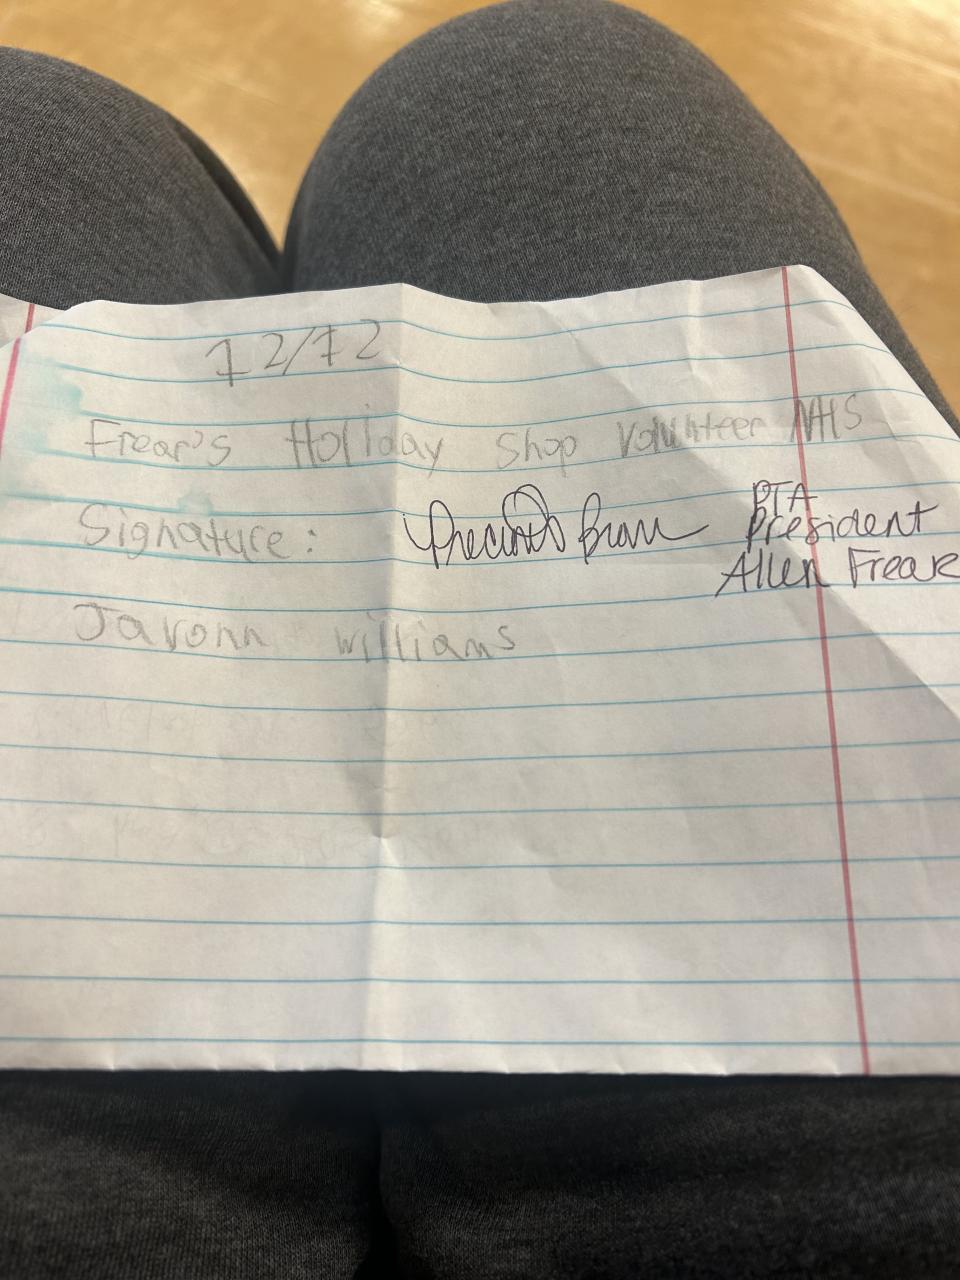 12/12
Frear's Holiday Shop Volunteer NHS
Signature: Precious
PTA
President
Allen Frear
Javonn Williams